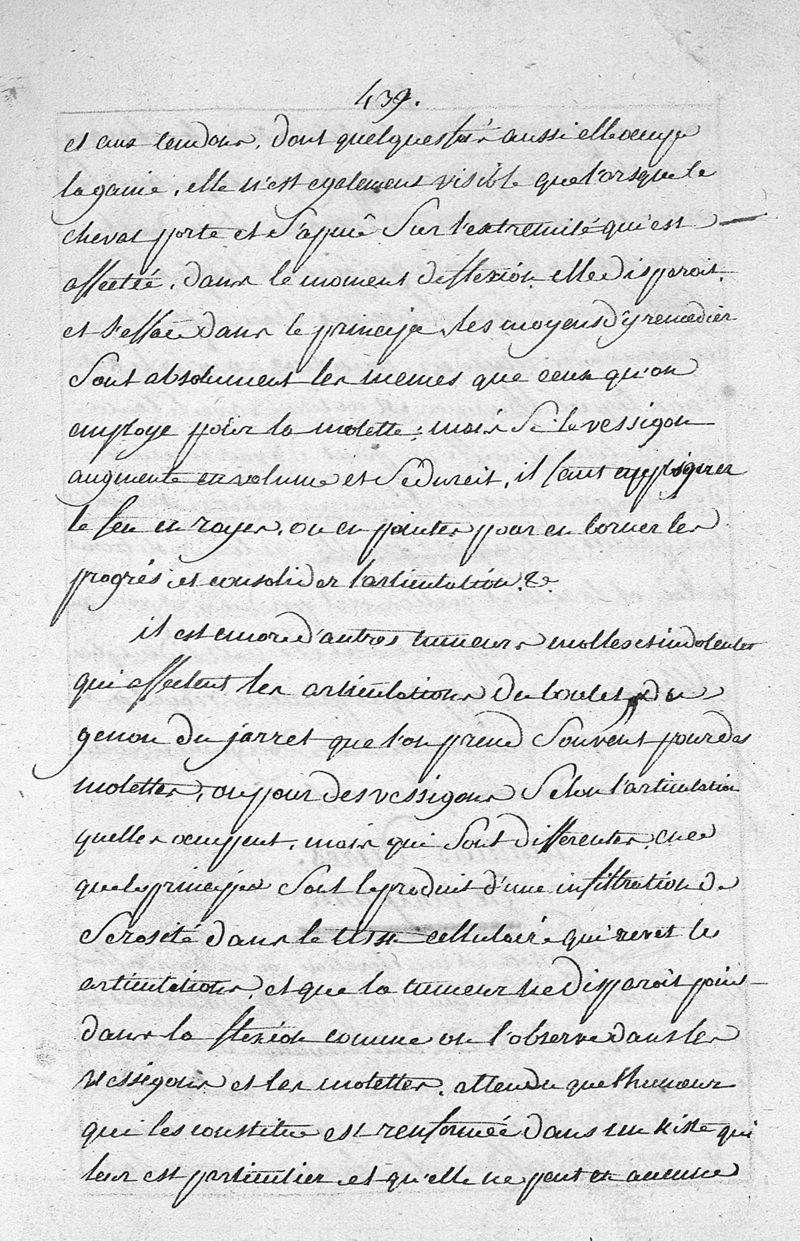 439.
et aux tendons, dont quelques fois aussi elle occupe
la gaine, elle n'est egalement visible que lorsque le
cheval porte et s'apuie sur l'extremité qui est
affectée, dans le moment de flexion elle disparoit
et s'efface dans le principe, les moyens d'y remedier
sont absolument les memes que ceux qu'on
employe pour la molette; mais si le vessigon
augmente en volume et se durcit, il faut appliquer
le feu en rayes, ou en pointes pour en borner les
progrès, et consolider l'articulation, &c
il est encore d'autres tumeurs molles et indolentes
qui affectent les articulations du boulet, du
genou du jarret que l'on prend souvent pour des
molettes, ou pour des vessigons selon l'articulation
quelles occupent, mais qui sont differentes, en ce
que le principe sont le produit d'une infiltration de
serosité dans le tissu cellulaire qui revet les
articulations, et que la tumeur ne disparoit point
dans la flexion comme on l'observe dans les
vessigons et les molettes, attendu que l'humeur
qui les constitue est renfermée dans un kiste qui
leur est particulier et qu'elle ne peut en aucune